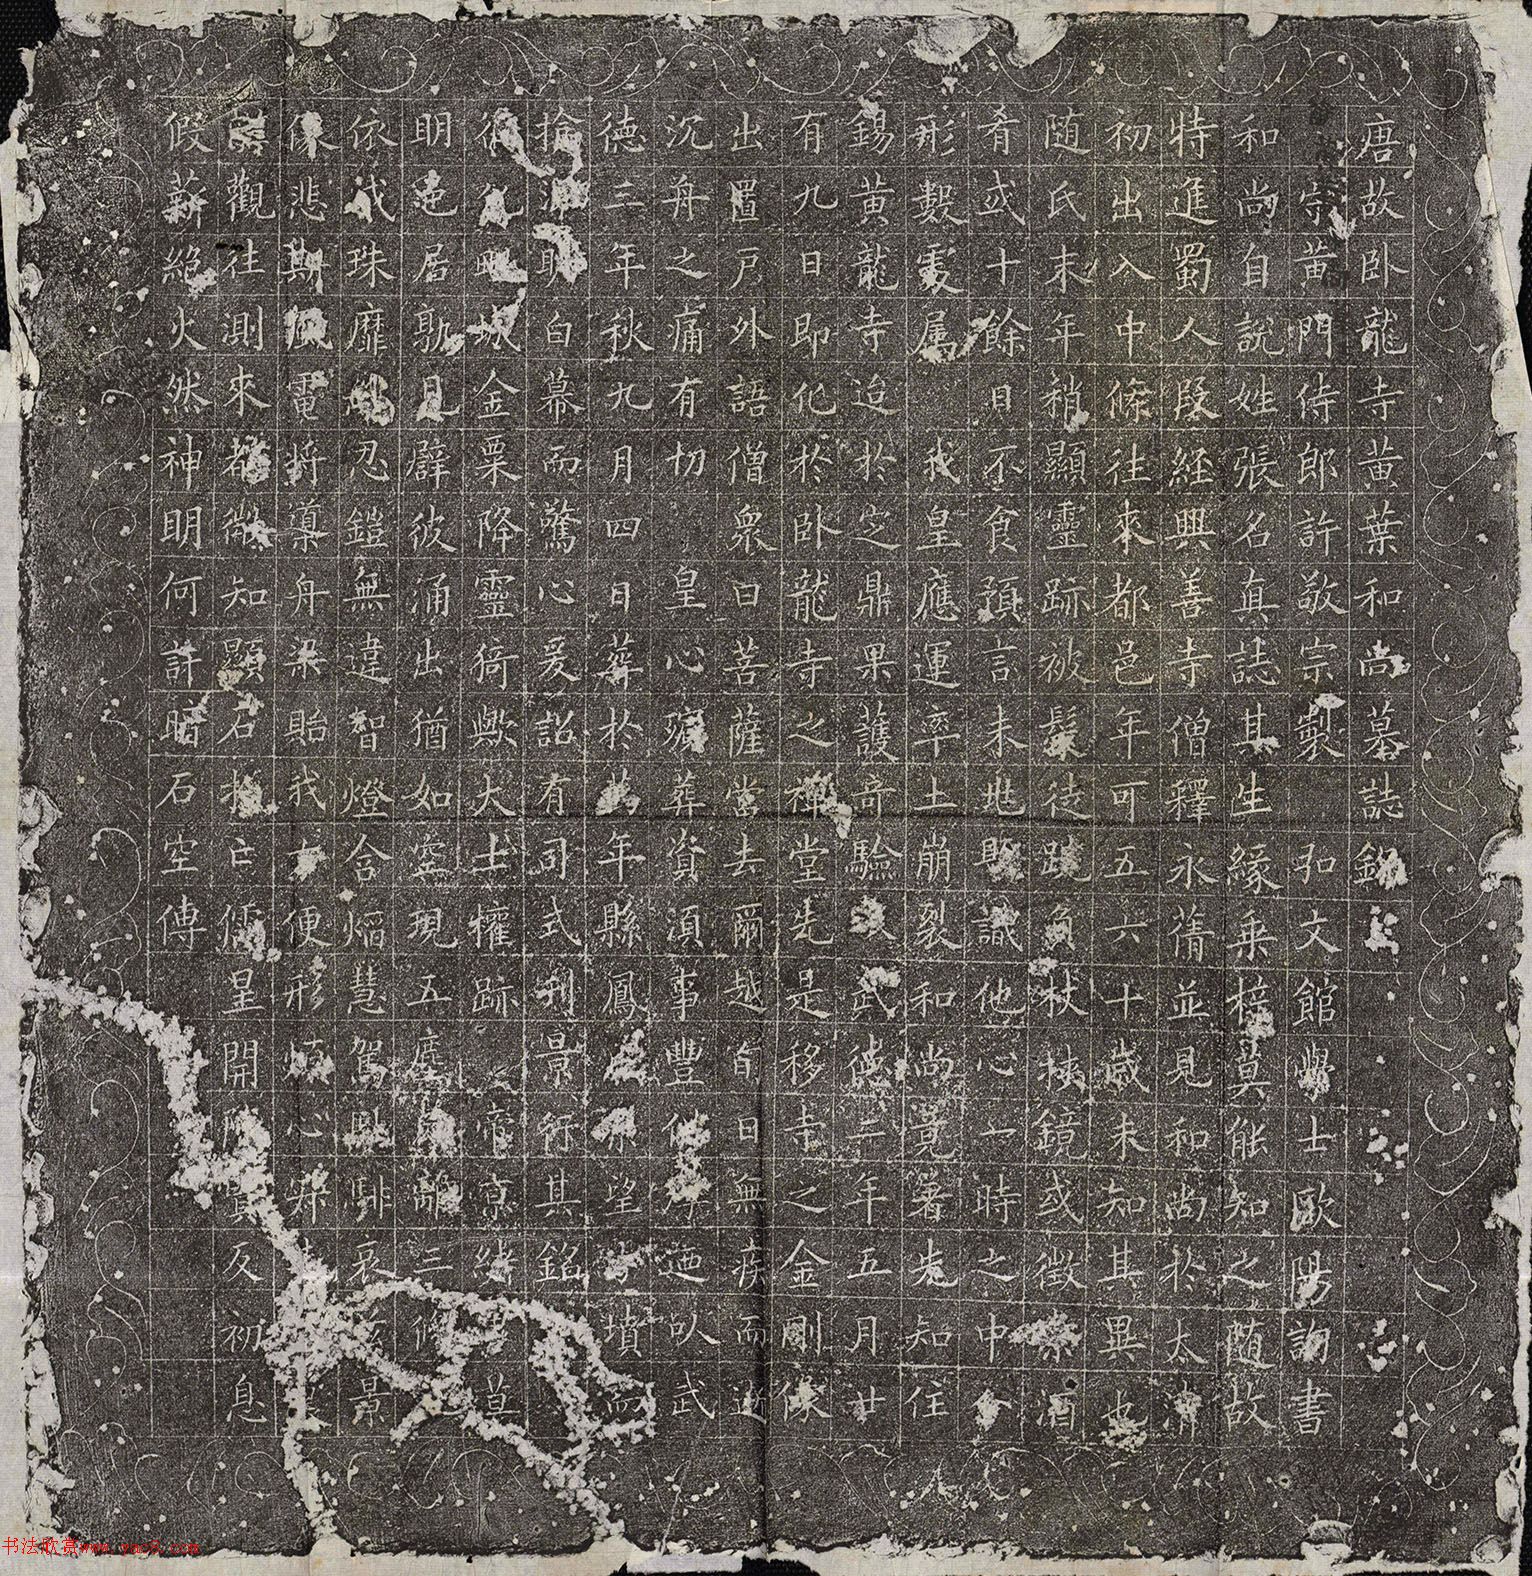 唐故卧龍寺黃葉和尚墓誌銘
宗黃門侍郎許敬宗製 弘文館學士歐陽詢書
和尚自説姓張名真誌其生緣乘梓莫能知之隨故
特進蜀人段經興善寺僧釋永蒨並見和尚於太清
初出入中條往來都邑年可五六十歲未知其異也
随氏末年稍顯靈跡被髮徒跣負杖挾鏡或徵索酒
肴或十餘日不食預言未兆賖識他心一時之中分
形數處属 我皇應運率土崩裂和尚竟著先知住
錫黃龍寺迨於定鼎果護奇驗 武德二年五月廿
有九日即化於卧龍寺之禪堂先是移寺之金剛像
出置戸外語僧衆曰菩薩當去爾越旬日無疾而逝
沉舟之痛有切 皇心殯葬資須事豐供厚迺以武
德三年秋九月四日葬於萬年縣鳳 望 墳而
明白幕而驚心爰詔有司式刊景行其銘
城金粟降靈猗歟大士權跡 帝京 草
明邑居勃見辟彼涌出猶如空現五塵 離三修
依我珠靡 忍鎧無違智燈含焰慧駕 騑哀 景
像悲斯風電將導舟梁貽我方便形 心 
觀往測來都微知顯石 亡儒星開 反初息
假薪絶火然神明何許暗石空傳
书法欣赏www.yac8.com